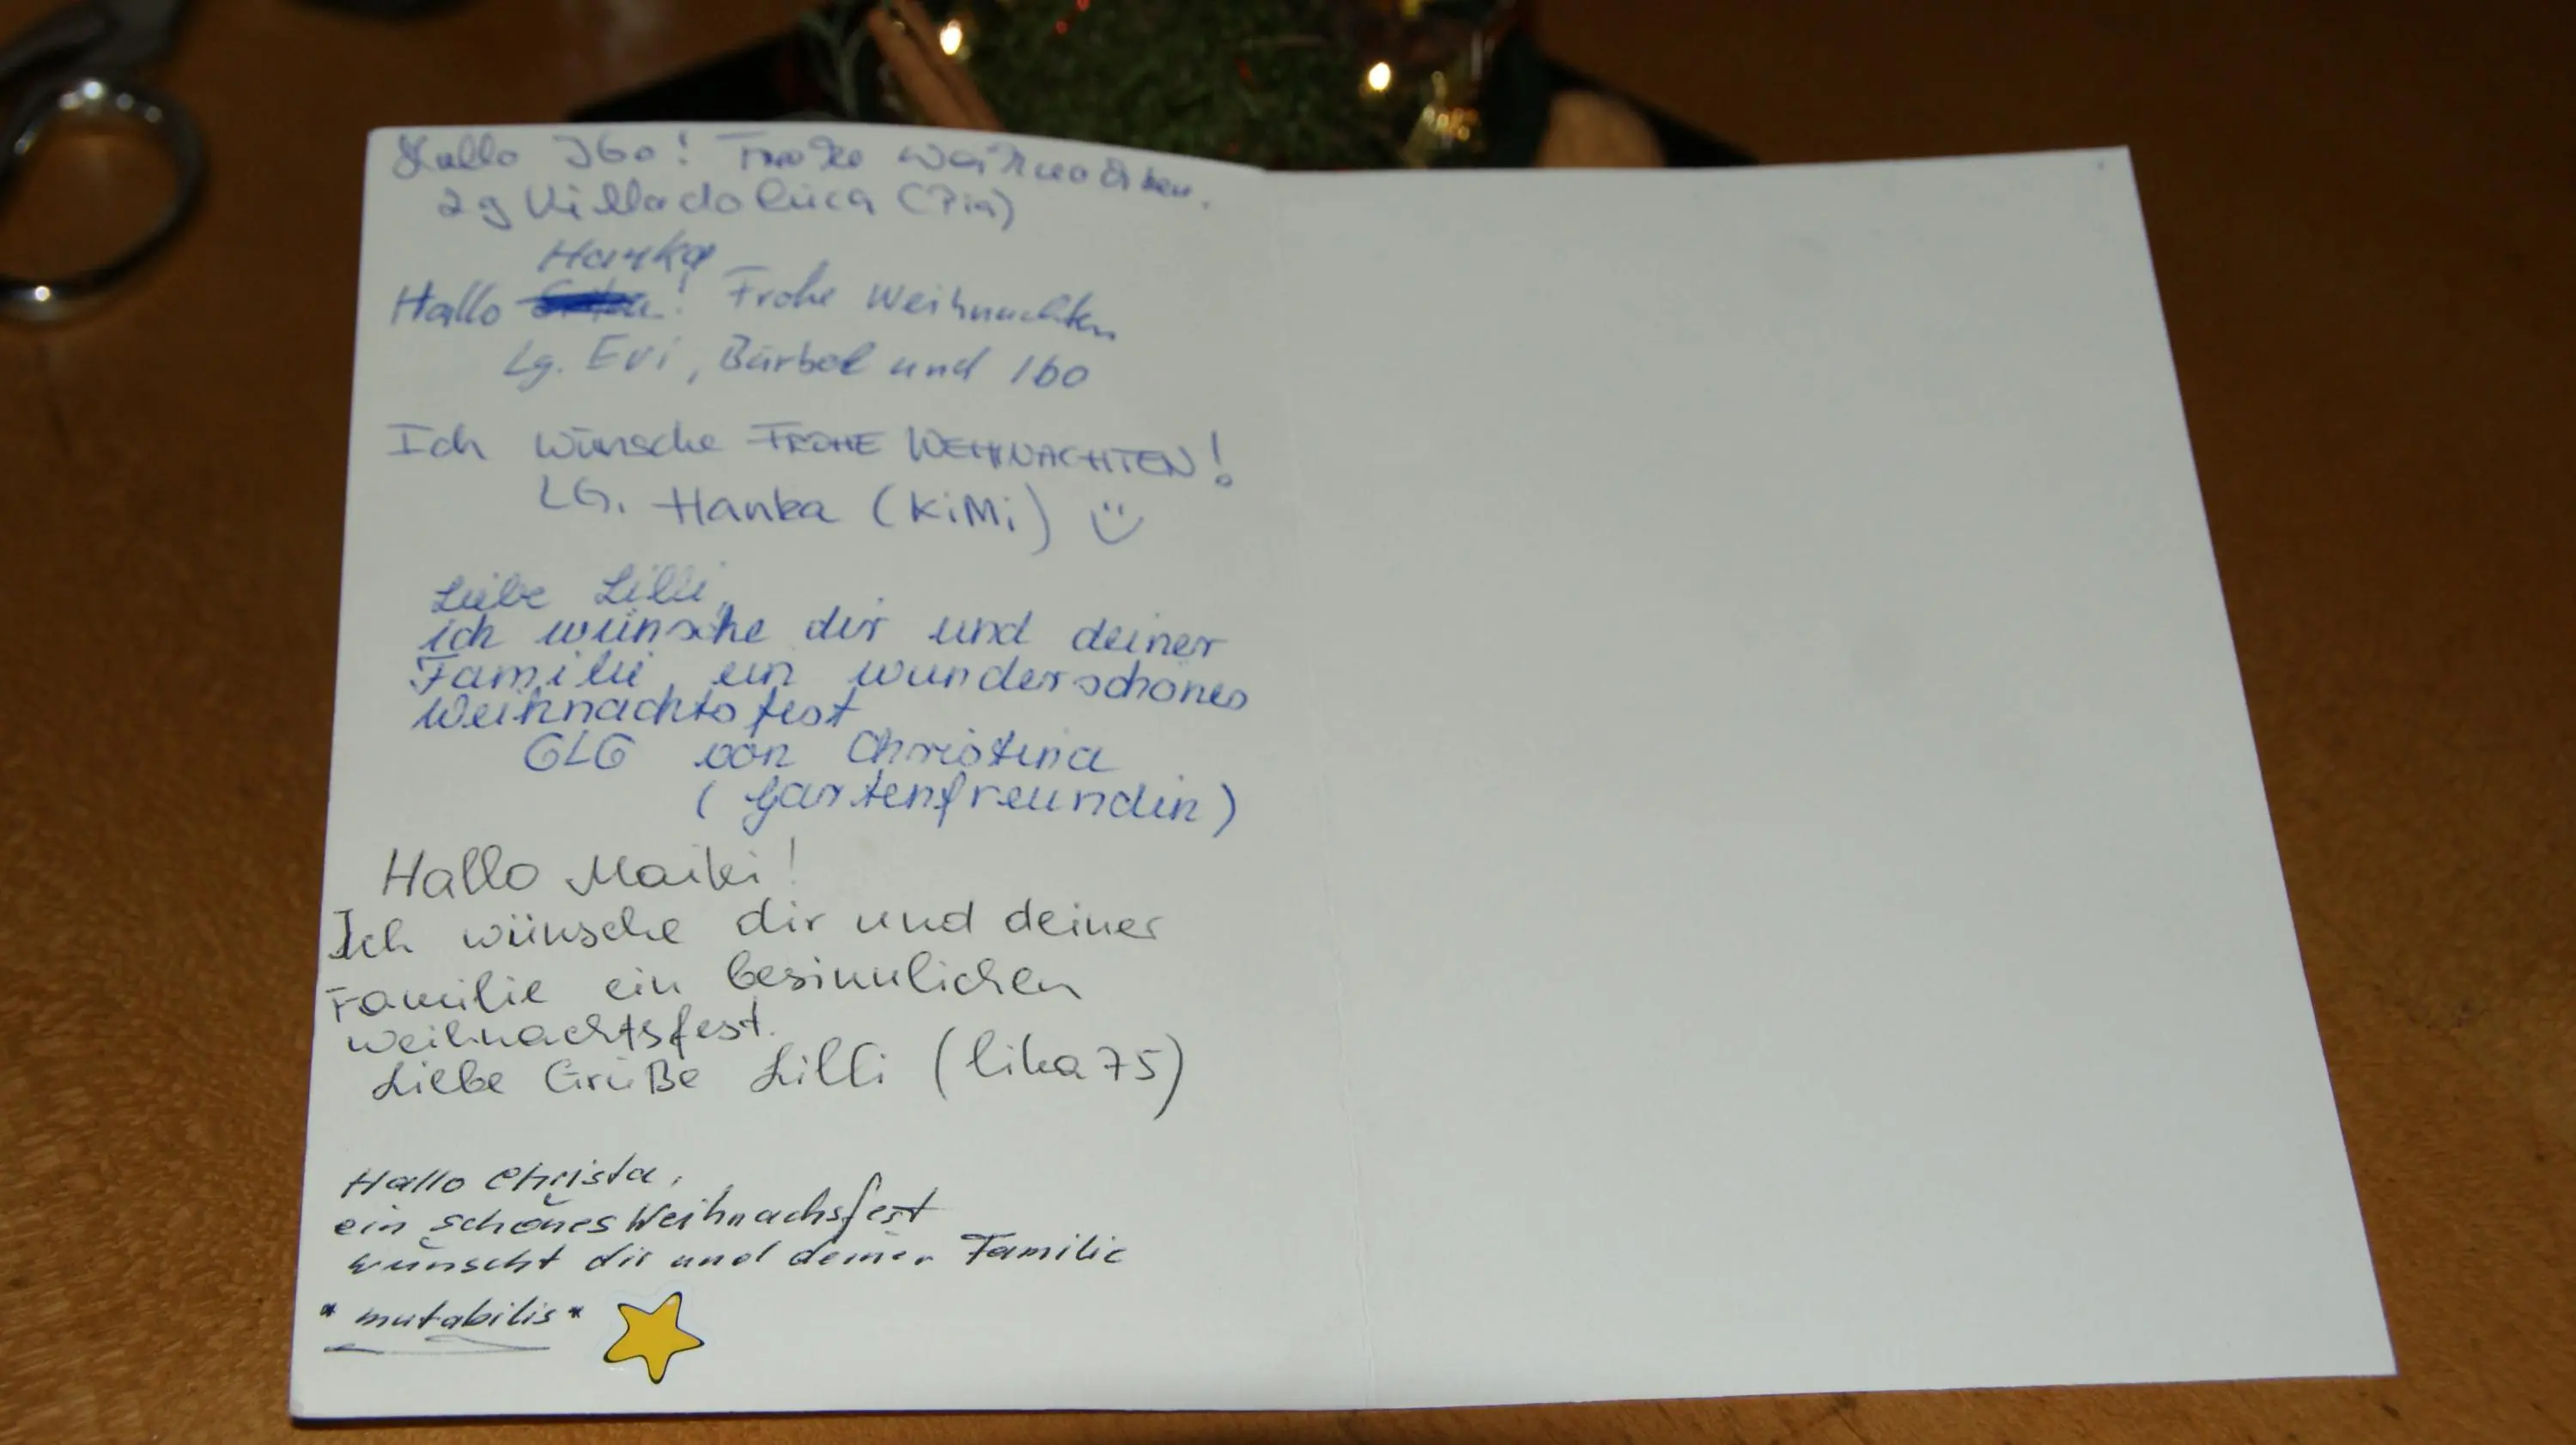 Hallo Ibo! Frohe Weihnachten.
Lg Villadoluca (Pia)
Hanka
Hallo ! Frohe Weihnachten
Lg. Evi, Bärbel und Ibo
Ich wünsche FROHE WEIHNACHTEN!
LG. Hanka (KiMi) ☺
Liebe Lilli,
ich wünsche dir und deiner
Familie ein wunderschönes
Weihnachtsfest
GLG von Christina
(Gartenfreundin)
Hallo Maiki!
Ich wünsche dir und deiner
Familie ein besinnlichen
Weihnachtsfest.
Liebe Grüße Lilli (lika75)
Hallo Christa,
ein schönes Weihnachsfest
wünscht dir und deiner Familie
* mutabilis *